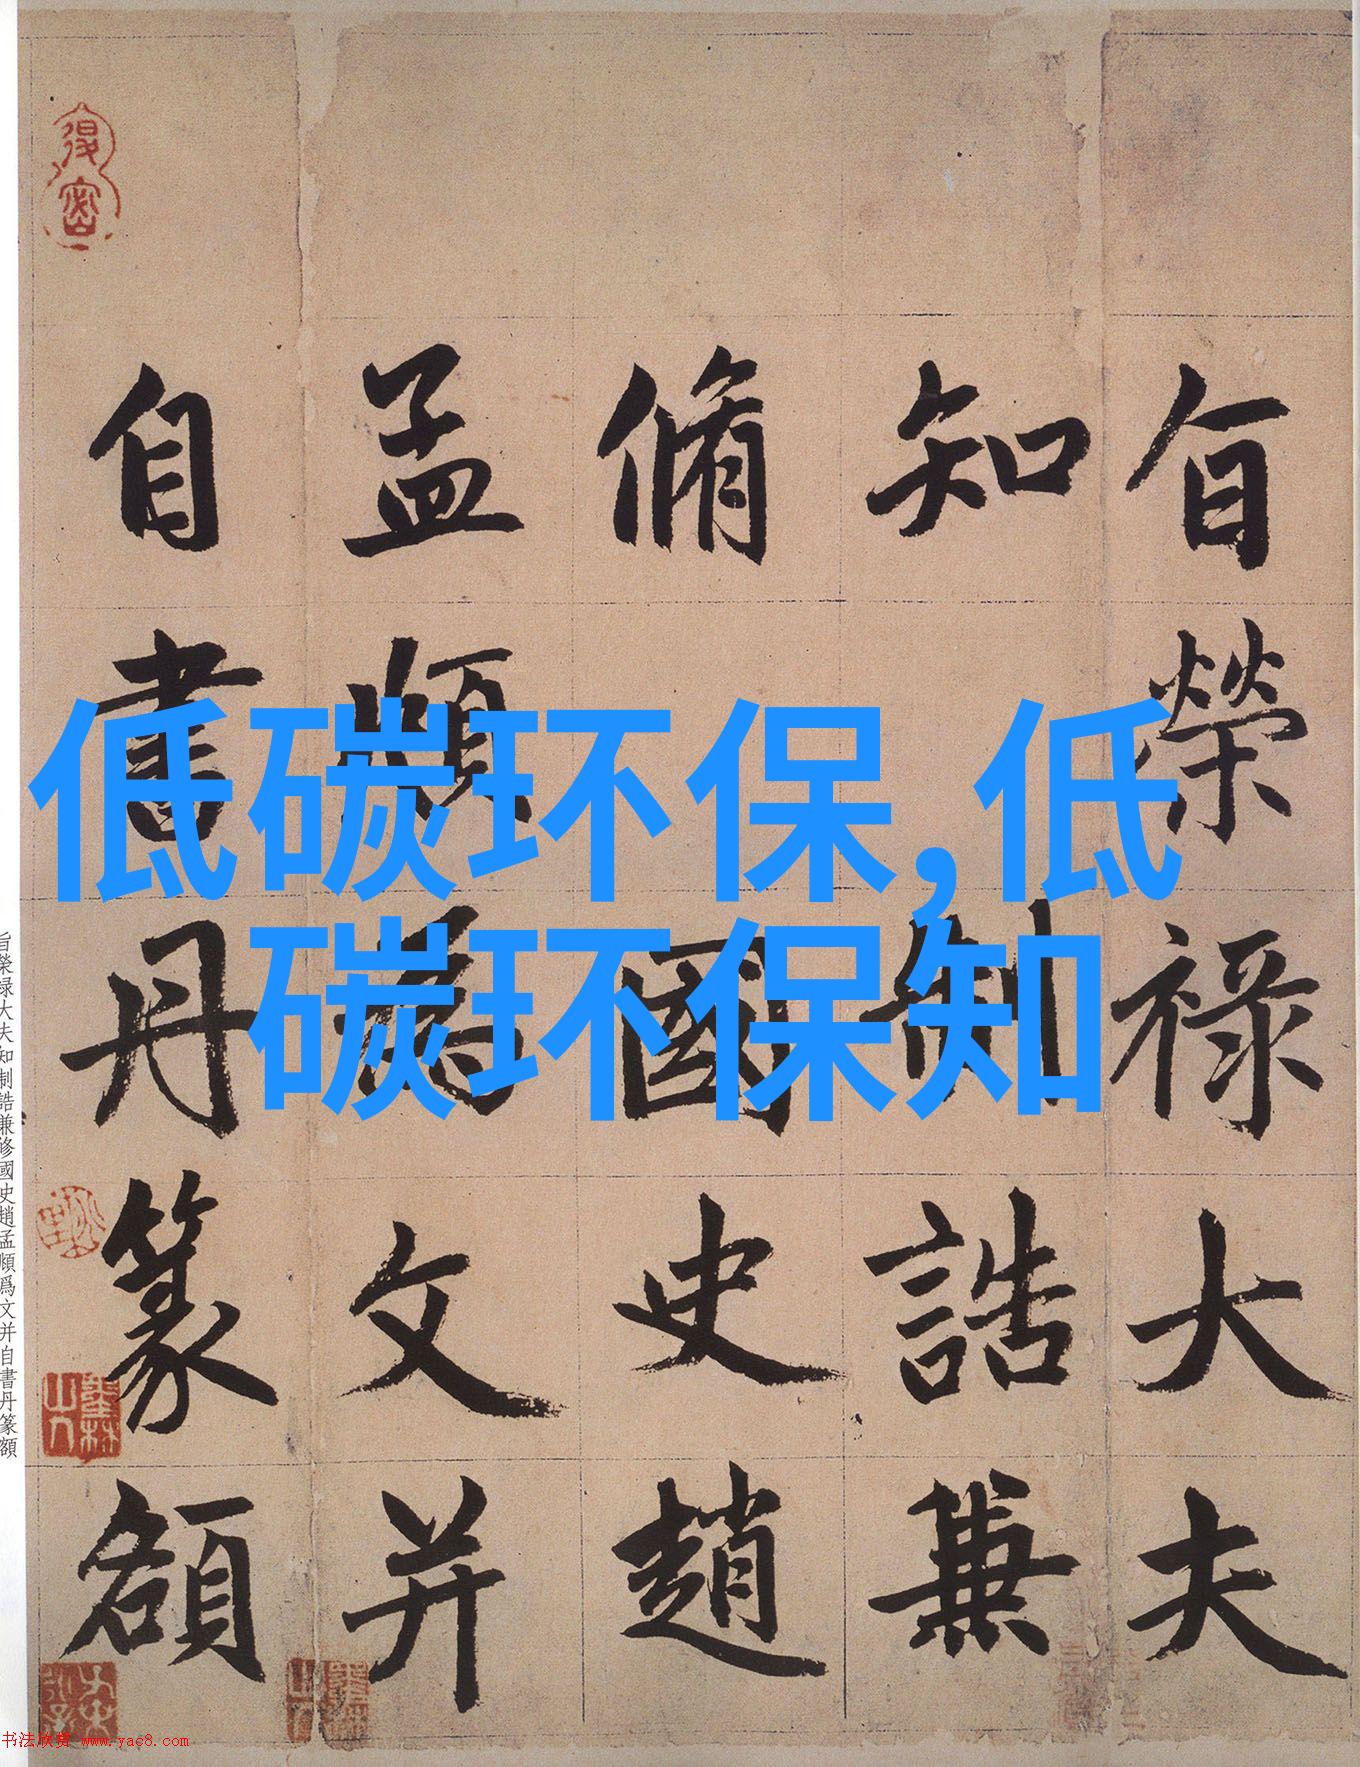 旨榮禄大夫
知制誥兼
脩國史趙
孟頫為文并
自書丹篆額
低碳环保,低
碳环保知
旨榮禄大夫知制誥兼修國史趙孟頫爲文并自書丹篆額
书法欣赏 www.yac8.com